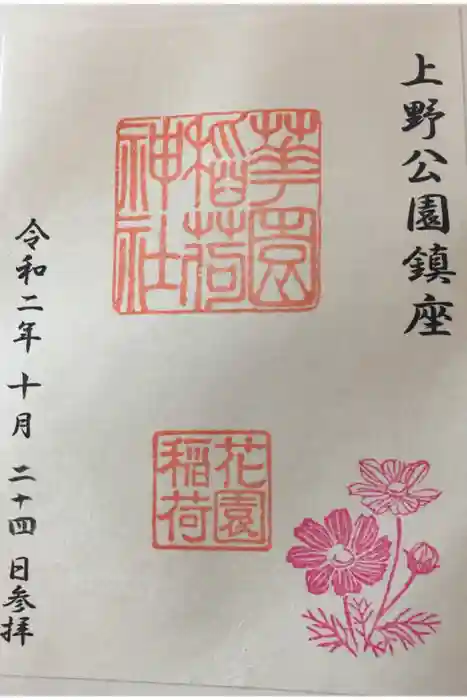 上野公園鎮座
華園
稲荷
神社
花園
稲荷
令和二年十月二十四日参拝